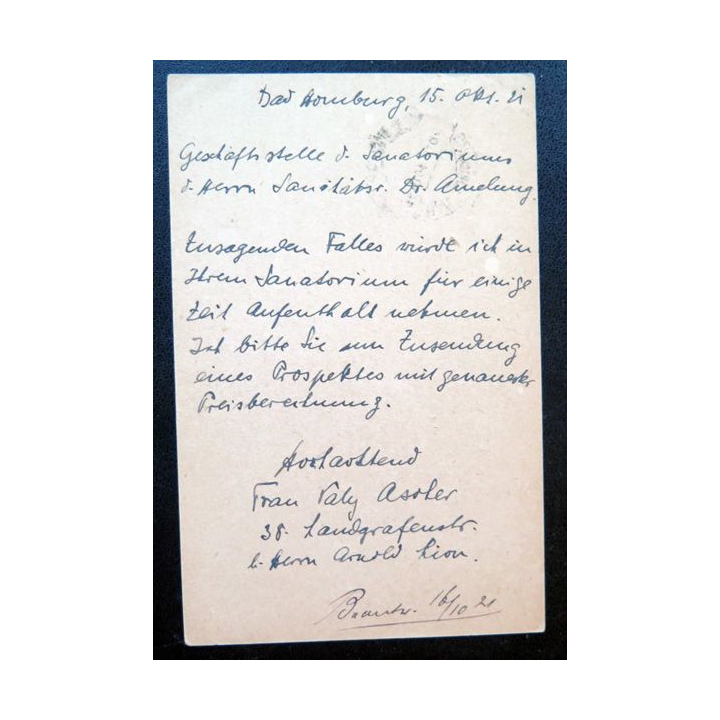 Bad Homburg, 15. Okt. 21
Geschäftsstelle d. Sanatoriums
d. Herrn Sanitätsr. Dr. Amelung.
Zusagenden Falles würde ich in
Ihrem Sanatorium für einige
Zeit Aufenthalt nehmen.
Ich bitte Sie um Zusendung
eines Prospektes mit genauester
Preisberechnung.
Hochachtend
Frau Valy Ascher
38. Landgrafenstr.
b. Herrn Arnold Lion.
Beantw. 16/10 21